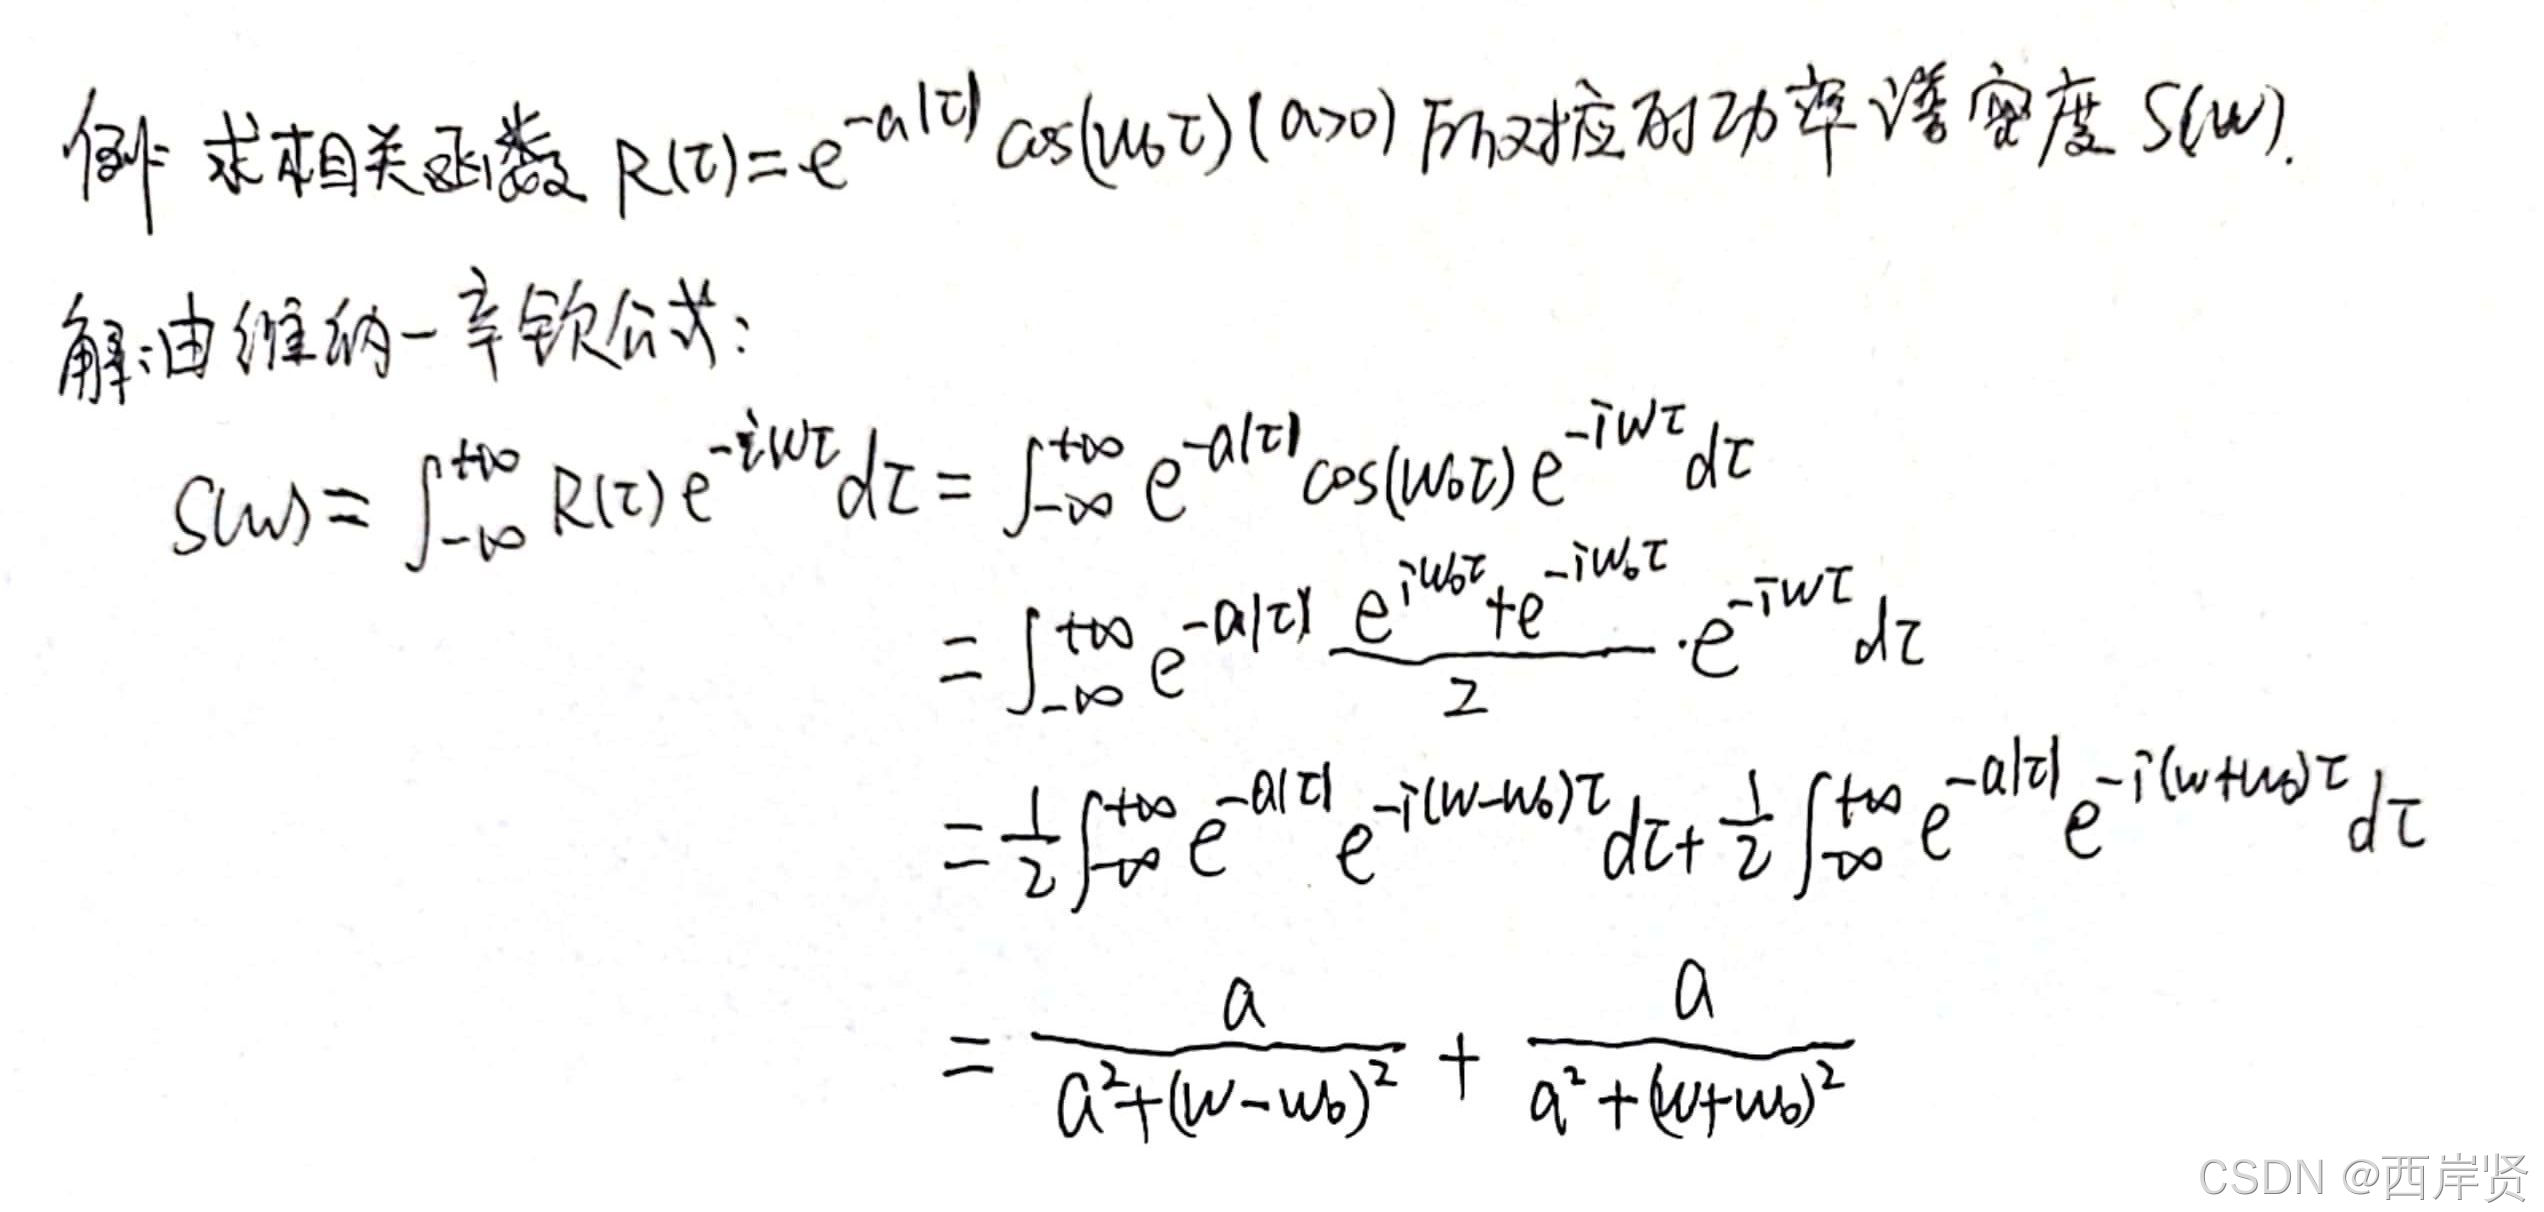 例 求相关函数 R(τ)=e^{-a|τ|} cos(ω₀τ) (a>0) 所对应的功率谱密度 S(ω).
解:由维纳-辛钦公式:
S(ω) = ∫_{-∞}^{+∞} R(τ) e^{-iωτ} dτ = ∫_{-∞}^{+∞} e^{-a|τ|} cos(ω₀τ) e^{-iωτ} dτ
= ∫_{-∞}^{+∞} e^{-a|τ|} \frac{e^{iω₀τ}+e^{-iω₀τ}}{2} · e^{-iωτ} dτ
= \frac{1}{2} ∫_{-∞}^{+∞} e^{-a|τ|} e^{-i(ω-ω₀)τ} dτ + \frac{1}{2} ∫_{-∞}^{+∞} e^{-a|τ|} e^{-i(ω+ω₀)τ} dτ
= \frac{a}{a²+(ω-ω₀)²} + \frac{a}{a²+(ω+ω₀)²}
CSDN @西岸贤